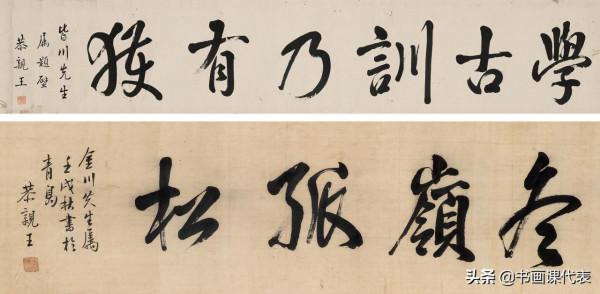 學古訓乃有獲
皆川先生
属題壁
恭親王
冬嶺孤松
金川先生属
壬戌秋書於
青島
恭親王
头条 @书画课代表